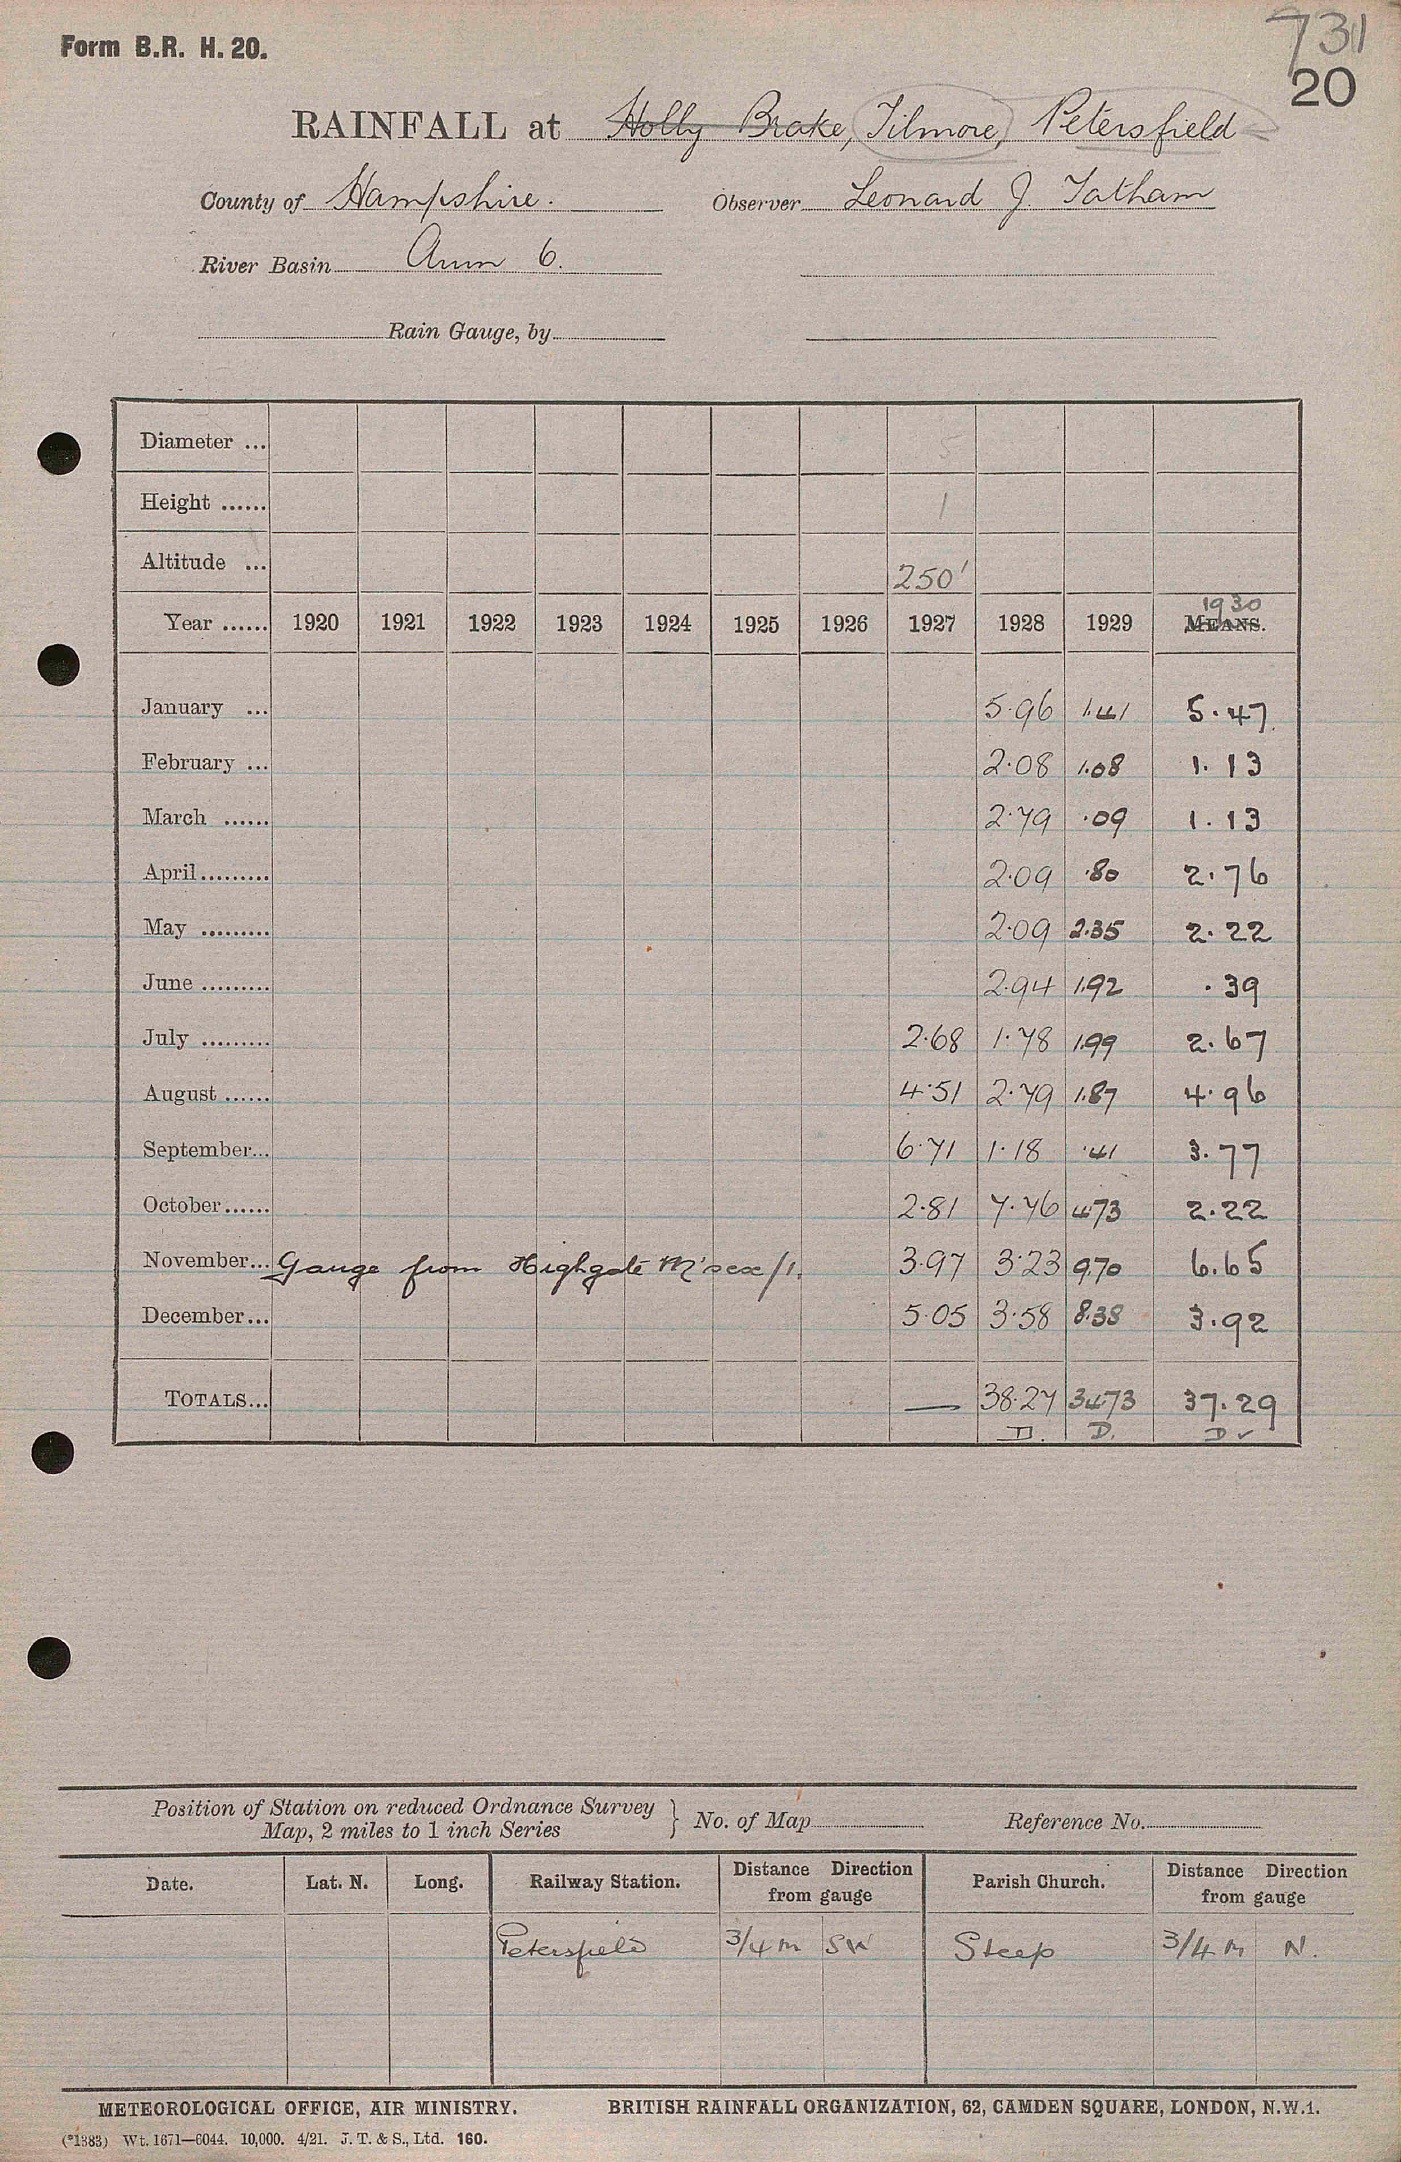 Form B.R. H. 20.
731
20
RAINFALL at Holly Brake, Tilmore, Petersfield
County of Hampshire. Observer Leonard J. Tatham
River Basin Arun 6.
Rain Gauge, by
Diameter ... 5
Height ...... 1
Altitude ... 250'
1930
Year ...... 1920 1921 1922 1923 1924 1925 1926 1927 1928 1929 MEANS.
January ... 5.96 1.41 5.47
February ... 2.08 1.08 1.13
March ...... 2.79 .09 1.13
April ......... 2.09 .80 2.76
May ......... 2.09 2.35 2.22
June ......... 2.94 1.92 .39
July ......... 2.68 1.78 1.99 2.67
August ...... 4.51 2.79 1.87 4.96
September... 6.71 1.18 .41 3.77
October ...... 2.81 7.76 4.73 2.22
November... Gauge from Highgate M'sex /1. 3.97 3.23 9.70 6.65
December ... 5.05 3.58 8.38 3.92
TOTALS... — 38.27 34.73 37.29
D. D. D ✓
Position of Station on reduced Ordnance Survey
Map, 2 miles to 1 inch Series } No. of Map Reference No.
Date. Lat. N. Long. Railway Station. Distance Direction from gauge Parish Church. Distance Direction from gauge
Petersfield 3/4 m SW Steep 3/4 m N.
METEOROLOGICAL OFFICE, AIR MINISTRY. BRITISH RAINFALL ORGANIZATION, 62, CAMDEN SQUARE, LONDON, N.W.1.
(*1383) Wt. 1671—6044. 10,000. 4/21. J. T. & S., Ltd. 160.